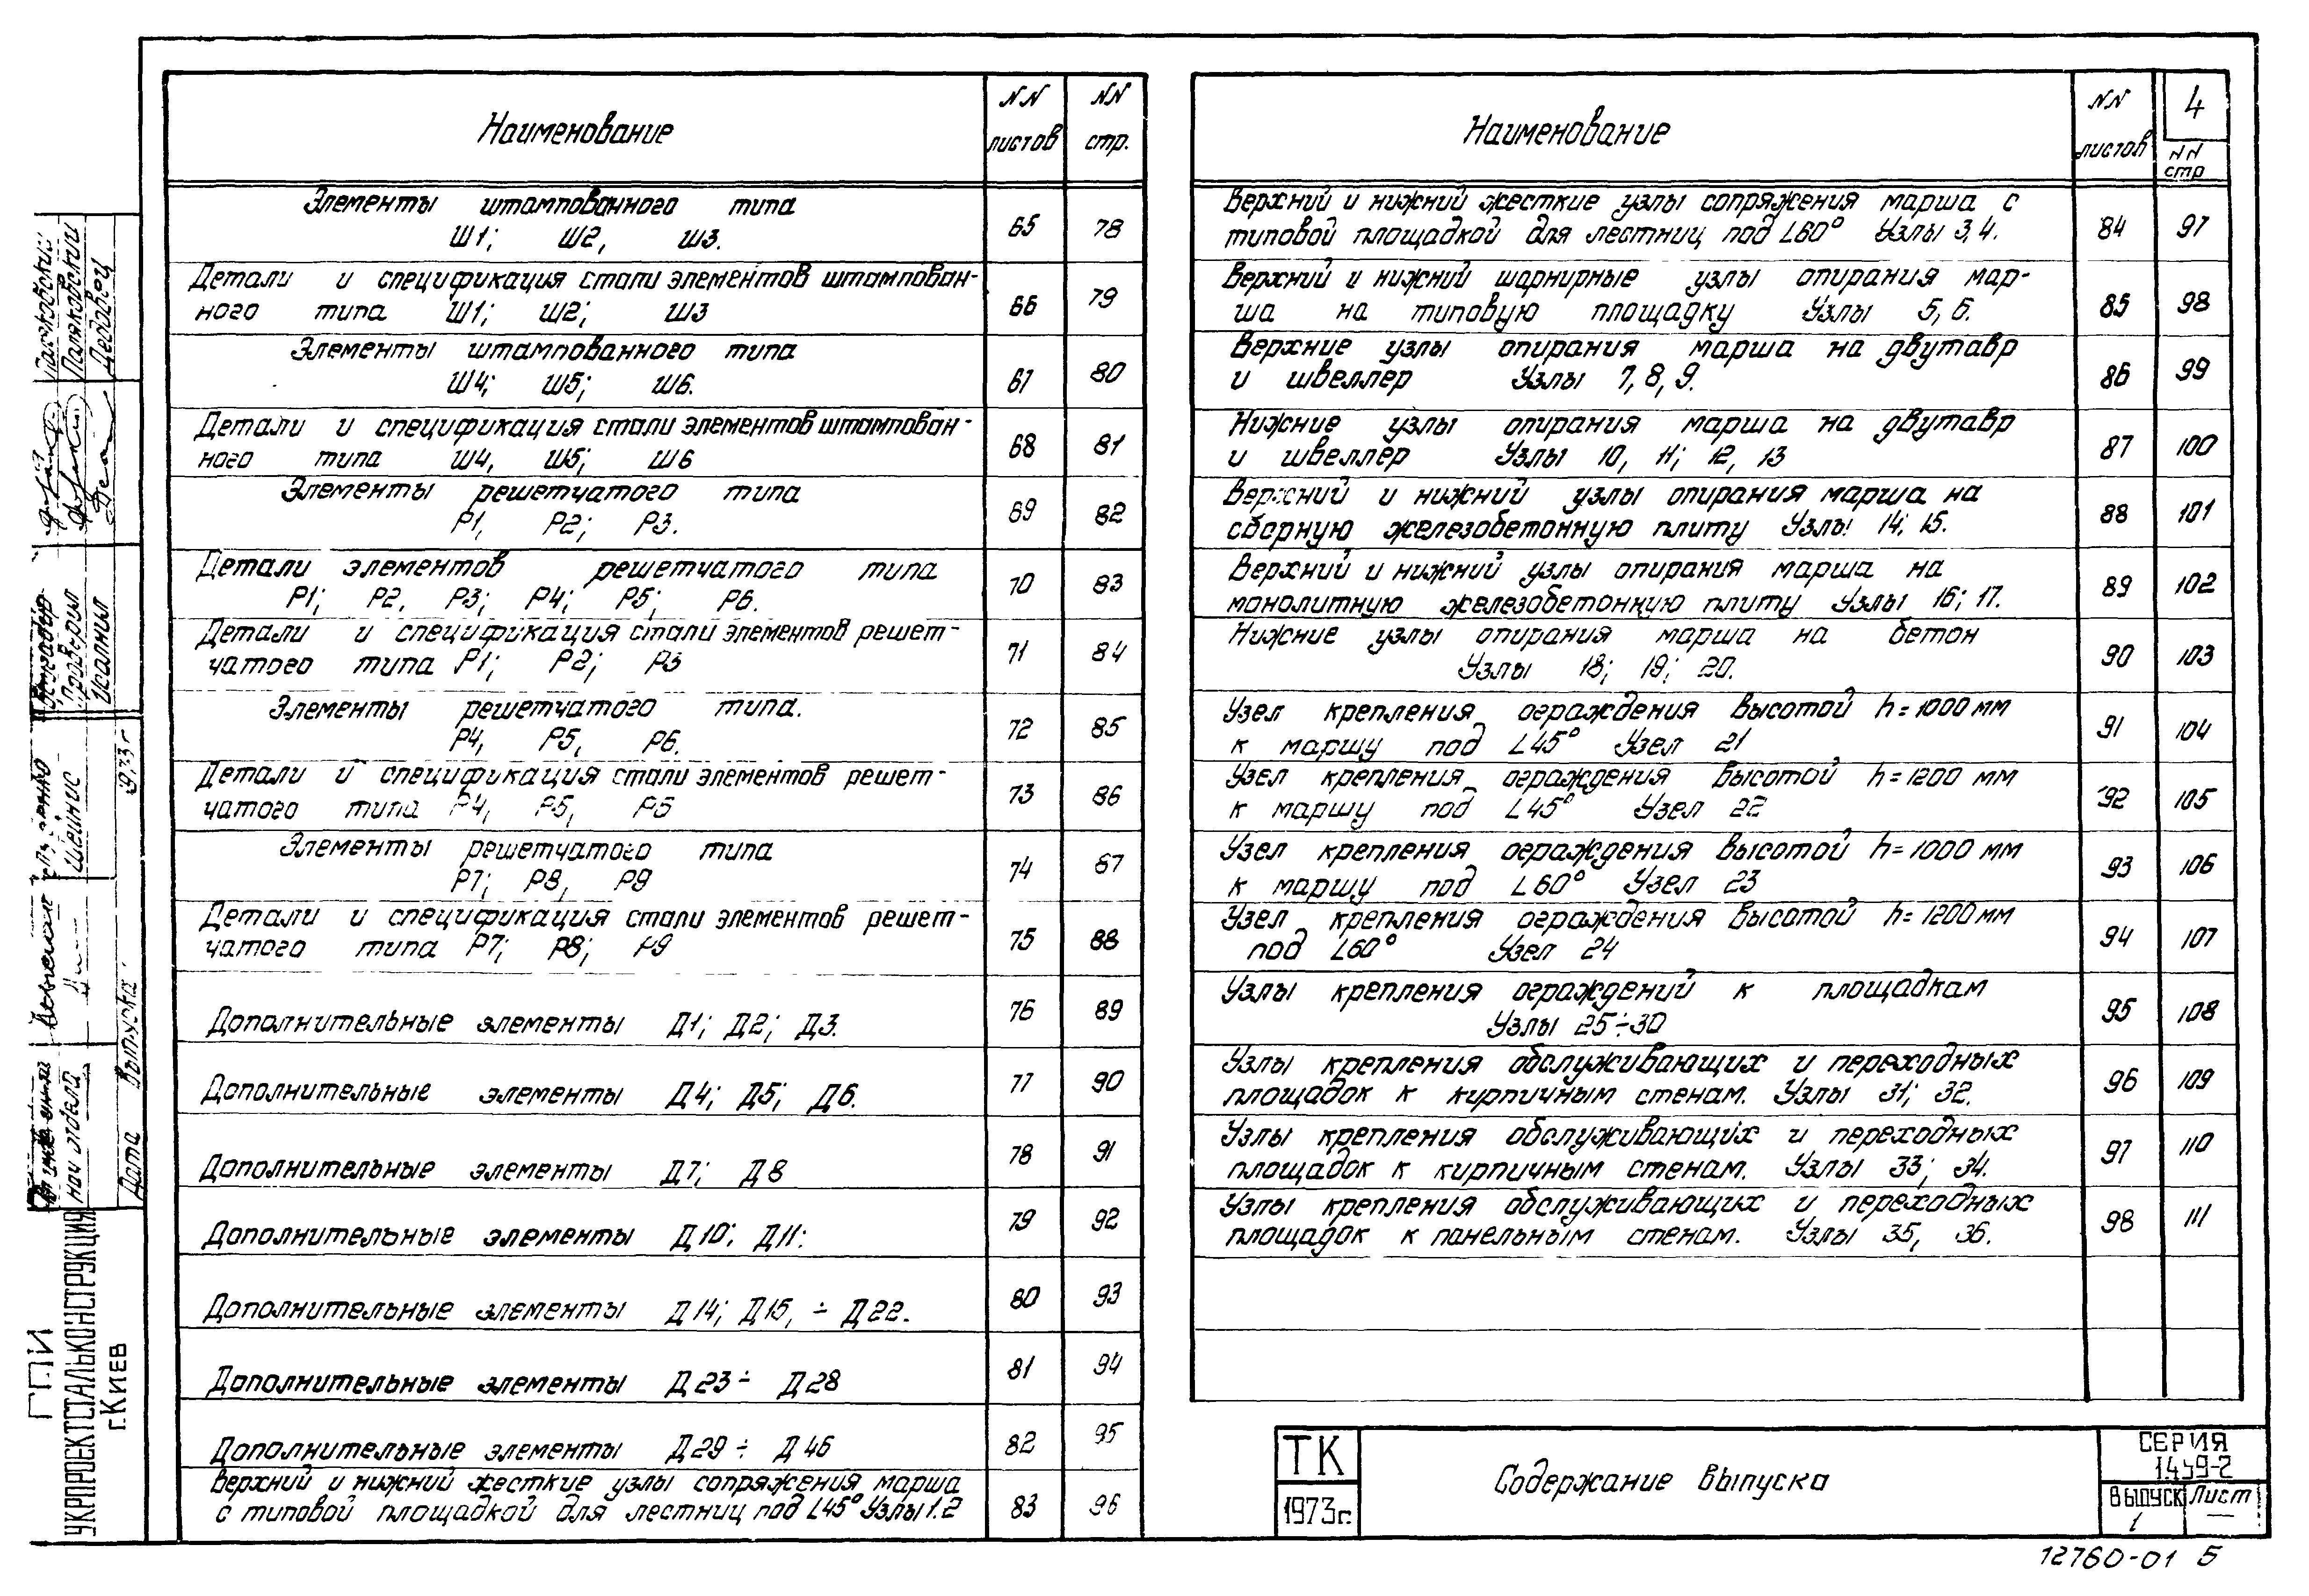 Наименование
NN листов
NN стр.
Элементы штампованного типа
Ш1; Ш2, Ш3. 65 78
Детали и спецификация стали элементов штампован-
ного типа Ш1; Ш2; Ш3 66 79
Элементы штампованного типа
Ш4; Ш5; Ш6. 67 80
Детали и спецификация стали элементов штампован-
ного типа Ш4, Ш5; Ш6 68 81
Элементы решетчатого типа
Р1, Р2; Р3. 69 82
Детали элементов решетчатого типа
Р1; Р2, Р3; Р4; Р5; Р6. 70 83
Детали и спецификация стали элементов решет-
чатого типа Р1; Р2; Р3 71 84
Элементы решетчатого типа.
Р4, Р5, Р6. 72 85
Детали и спецификация стали элементов решет-
чатого типа Р4, Р5, Р6 73 86
Элементы решетчатого типа
Р7; Р8, Р9 74 87
Детали и спецификация стали элементов решет-
чатого типа Р7; Р8; Р9 75 88
Дополнительные элементы Д1; Д2; Д3. 76 89
Дополнительные элементы Д4; Д5; Д6. 77 90
Дополнительные элементы Д7; Д8 78 91
Дополнительные элементы Д10; Д11: 79 92
Дополнительные элементы Д14; Д15, ÷ Д22. 80 93
Дополнительные элементы Д23 ÷ Д28 81 94
Дополнительные элементы Д29 ÷ Д46 82 95
Верхний и нижний жесткие узлы сопряжения марша
с типовой площадкой для лестниц под L45° Узлы 1.2 83 96
Наименование
NN листов
4
NN стр
Верхний и нижний жесткие узлы сопряжения марша с
типовой площадкой для лестниц под L60° Узлы 3,4. 84 97
Верхний и нижний шарнирные узлы опирания мар-
ша на типовую площадку Узлы 5, 6. 85 98
Верхние узлы опирания марша на двутавр
и швеллер Узлы 7, 8, 9. 86 99
Нижние узлы опирания марша на двутавр
и швеллер Узлы 10, 11; 12, 13 87 100
Верхний и нижний узлы опирания марша на
сборную железобетонную плиту Узлы 14; 15. 88 101
Верхний и нижний узлы опирания марша на
монолитную железобетонную плиту Узлы 16; 17. 89 102
Нижние узлы опирания марша на бетон
Узлы 18; 19; 20. 90 103
Узел крепления ограждения высотой h=1000 мм
к маршу под L45° Узел 21 91 104
Узел крепления ограждения высотой h=1200 мм
к маршу под L45° Узел 22 92 105
Узел крепления ограждения высотой h=1000 мм
к маршу под L60° Узел 23 93 106
Узел крепления ограждения высотой h=1200 мм
под L60° Узел 24 94 107
Узлы крепления ограждений к площадкам
Узлы 25÷30 95 108
Узлы крепления обслуживающих и переходных
площадок к кирпичным стенам. Узлы 31; 32. 96 109
Узлы крепления обслуживающих и переходных
площадок к кирпичным стенам. Узлы 33; 34. 97 110
Узлы крепления обслуживающих и переходных
площадок к панельным стенам. Узлы 35, 36. 98 111
ТК
1973г.
Содержание выпуска
СЕРИЯ
1.459-2
Выпуск 1
Лист —
12760-01 5
ГПИ
УКРПРОЕКТСТАЛЬКОНСТРУКЦИЯ
г. Киев
нач отдела
Дата выпуска
Шейнис
Проверил
Исполнил
Дедовец